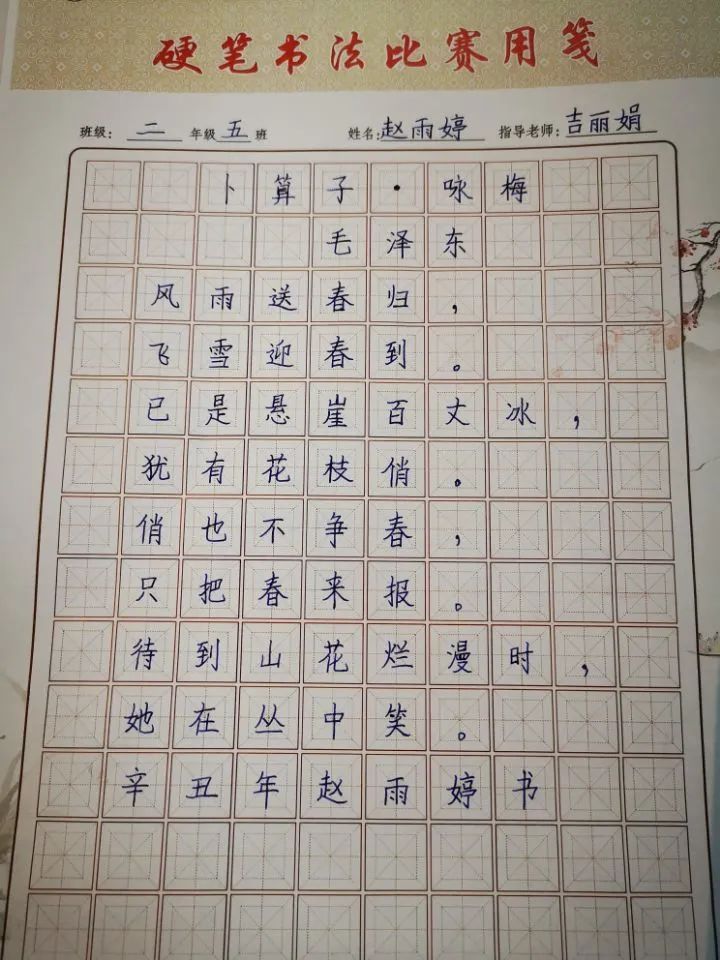 硬笔书法比赛用笺
班级：二年级五班 姓名:赵雨婷 指导老师:吉丽娟
卜算子·咏梅
毛泽东
风雨送春归，
飞雪迎春到。
已是悬崖百丈冰，
犹有花枝俏。
俏也不争春，
只把春来报。
待到山花烂漫时，
她在丛中笑。
辛丑年赵雨婷书